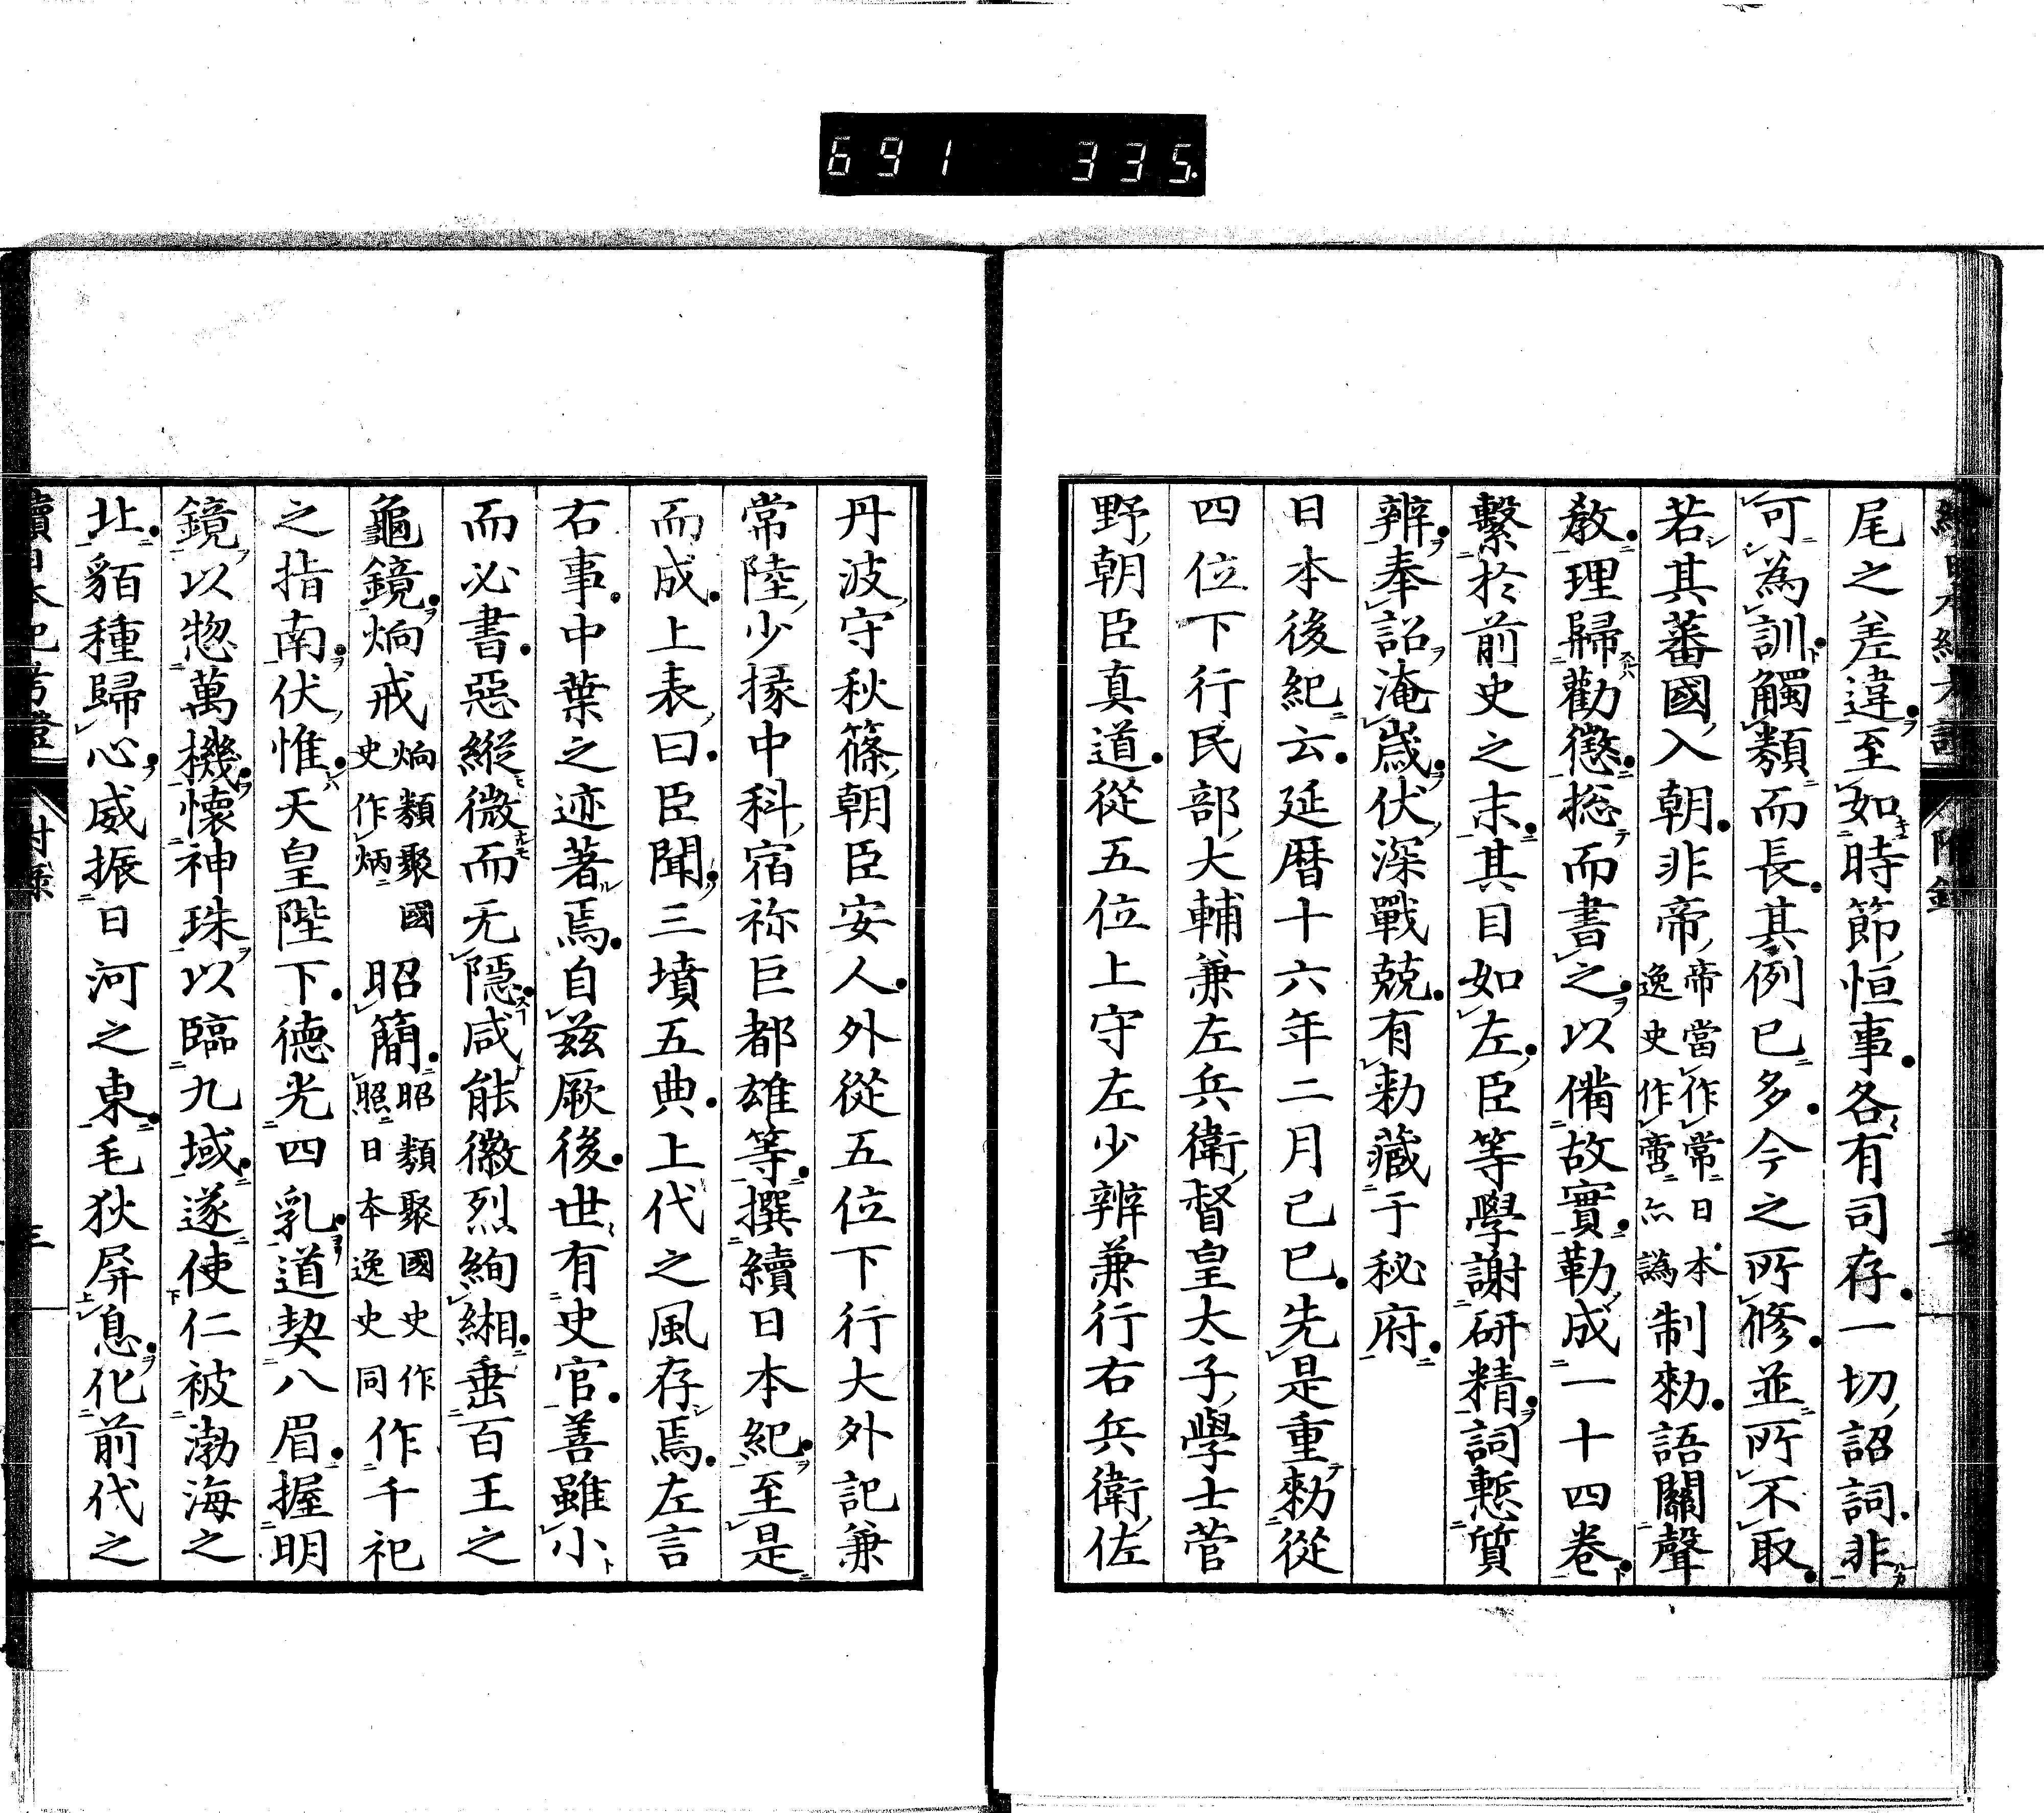 691 335
尾之差違至如時節恒事各有司存一切詔詞非
可為訓觸類而長其例已多今之所修並所不取
若其蕃國入朝非帝帝當作常日本逸史作啻亦譌制勅語關聲
教理歸勸懲捴而書之以備故實勒成一十四卷
繫於前史之末其目如左臣等學謝研精詞慙質
辨奉詔淹歳伏深戰兢有勅藏于秘府
日本後紀云延暦十六年二月己巳先是重勅從
四位下行民部大輔兼左兵衛督皇太子學士菅
野朝臣真道從五位上守左少辨兼行右兵衛佐
丹波守秋篠朝臣安人外從五位下行大外記兼
常陸少掾中科宿祢巨都雄等撰續日本紀至是
而成上表曰臣聞三墳五典上代之風存焉左言
右事中葉之迹著焉自茲厥後世有史官善雖小
而必書惡縦微而无隱咸能徽烈絢緗垂百王之
龜鏡炯戒炯類聚國史作炳昭簡昭類聚國史作照日本逸史同作千祀
之指南伏惟天皇陛下德光四乳道契八眉握明
鏡以惣萬機懷神珠以臨九域遂使仁被渤海之
北貊種歸心威振日河之東毛狄屏息化前代之
續日本紀考證 附錄 三